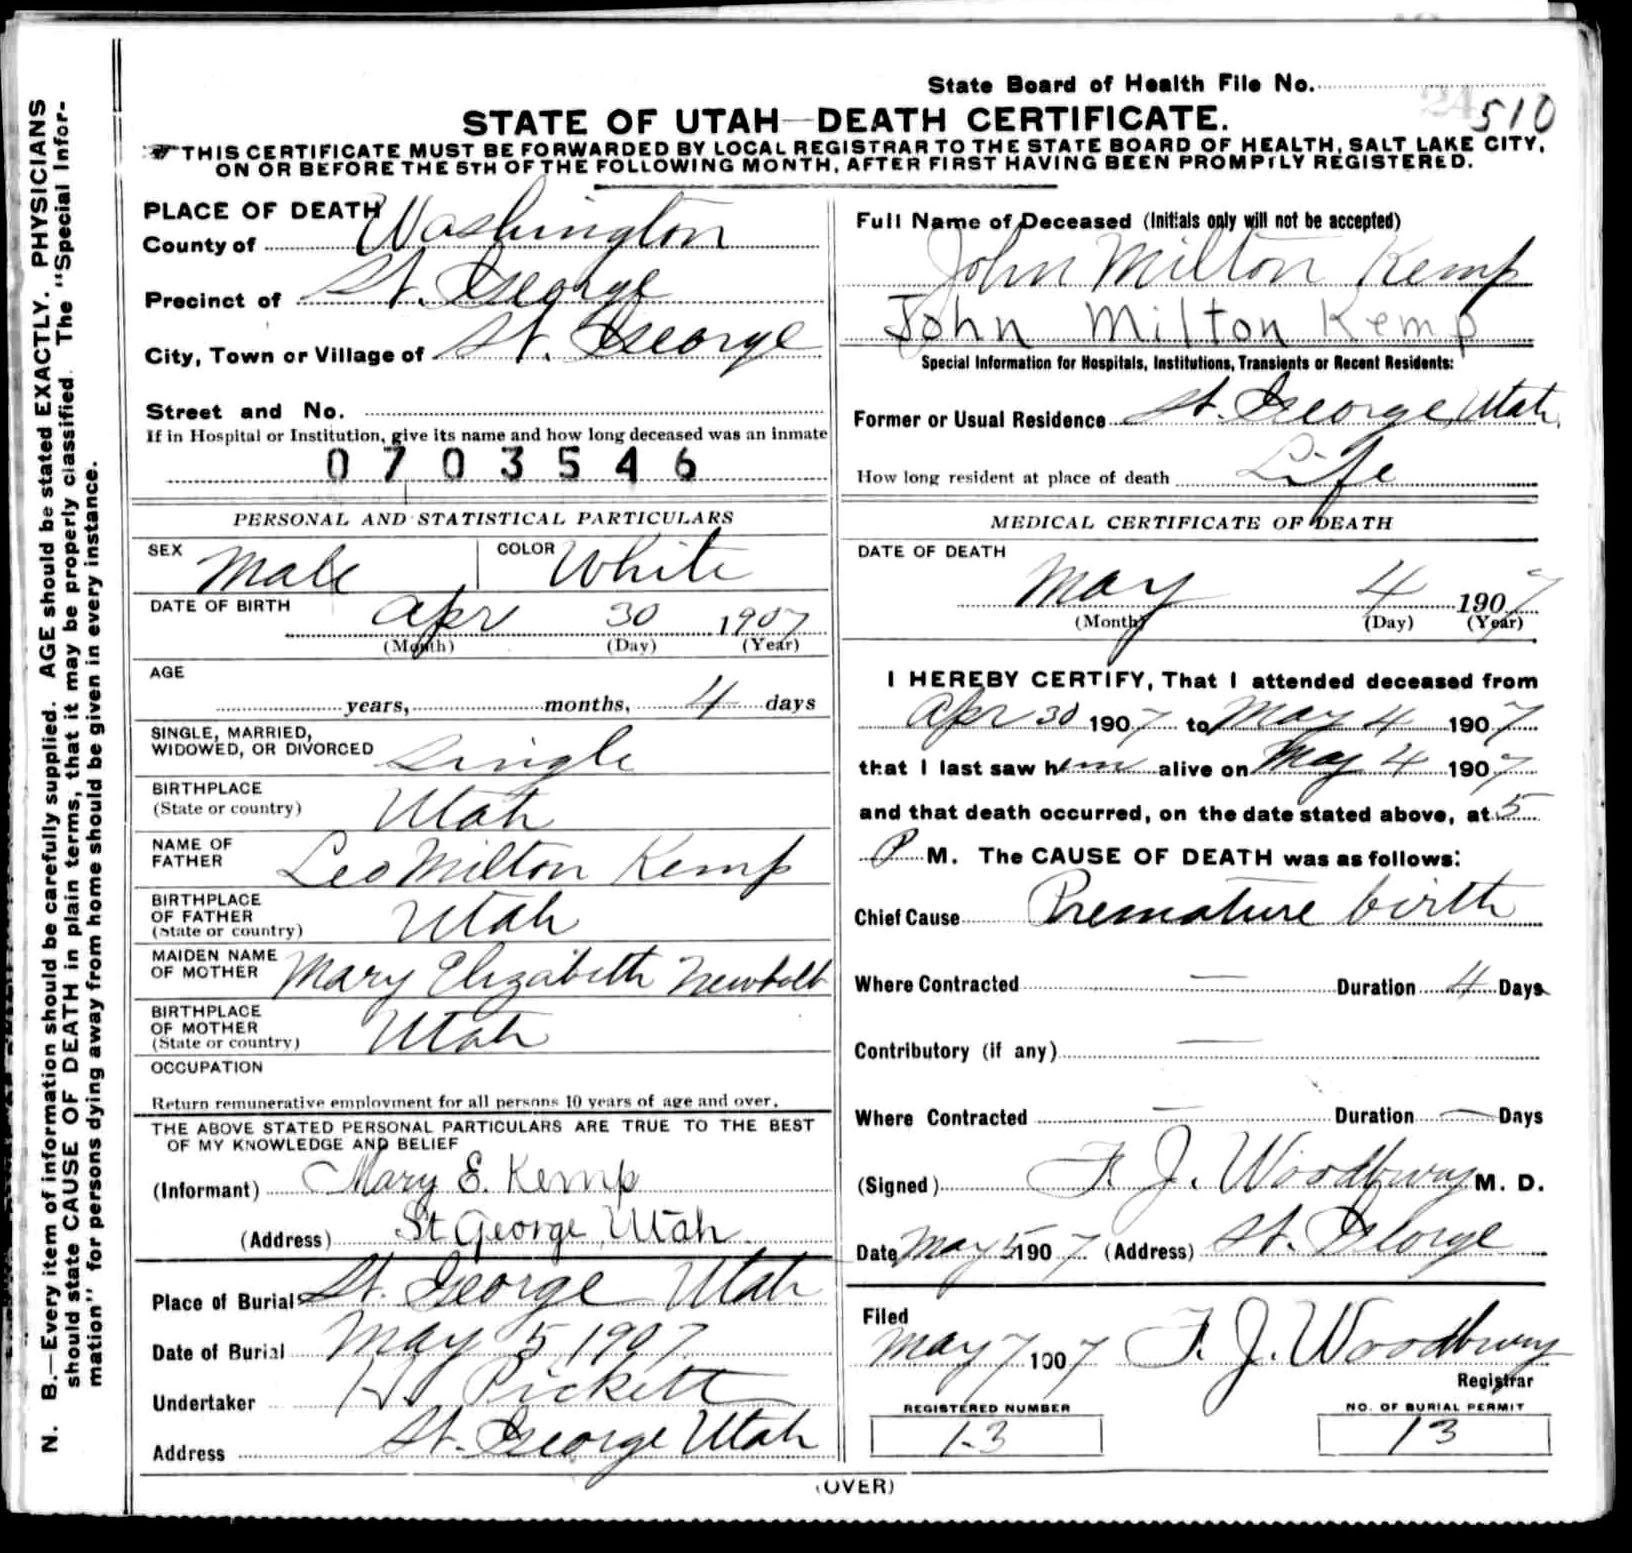 State Board of Health File No.
510
STATE OF UTAH—DEATH CERTIFICATE.
THIS CERTIFICATE MUST BE FORWARDED BY LOCAL REGISTRAR TO THE STATE BOARD OF HEALTH, SALT LAKE CITY,
ON OR BEFORE THE 5TH OF THE FOLLOWING MONTH, AFTER FIRST HAVING BEEN PROMPTLY REGISTERED.
N. B.—Every item of information should be carefully supplied. AGE should be stated EXACTLY. PHYSICIANS
should state CAUSE OF DEATH in plain terms, that it may be properly classified. The "Special Infor-
mation" for persons dying away from home should be given in every instance.
PLACE OF DEATH
County of Washington
Precinct of St. George
City, Town or Village of St. George
Street and No.
If in Hospital or Institution, give its name and how long deceased was an inmate
0703546
PERSONAL AND STATISTICAL PARTICULARS
SEX Male COLOR White
DATE OF BIRTH Apr 30 1907
(Month) (Day) (Year)
AGE
years, months, 4 days
SINGLE, MARRIED,
WIDOWED, OR DIVORCED Single
BIRTHPLACE
(State or country) Utah
NAME OF
FATHER Leo Milton Kemp
BIRTHPLACE
OF FATHER
(State or country) Utah
MAIDEN NAME
OF MOTHER Mary Elizabeth Newbolt
BIRTHPLACE
OF MOTHER
(State or country) Utah
OCCUPATION
Return remunerative employment for all persons 10 years of age and over.
THE ABOVE STATED PERSONAL PARTICULARS ARE TRUE TO THE BEST
OF MY KNOWLEDGE AND BELIEF
(Informant) Mary E. Kemp
(Address) St George, Utah
Place of Burial St. George Utah
Date of Burial May 5 1907
Undertaker Pickett
Address St. George Utah
Full Name of Deceased (Initials only will not be accepted)
John Milton Kemp
John Milton Kemp
Special Information for Hospitals, Institutions, Transients or Recent Residents:
Former or Usual Residence St. George, Utah
How long resident at place of death Life
MEDICAL CERTIFICATE OF DEATH
DATE OF DEATH
May 4 1907
(Month) (Day) (Year)
I HEREBY CERTIFY, That I attended deceased from
Apr 30 1907 to May 4 1907
that I last saw him alive on May 4 1907
and that death occurred, on the date stated above, at 5
P M. The CAUSE OF DEATH was as follows:
Chief Cause Premature birth
Where Contracted — Duration 4 Days
Contributory (if any) —
Where Contracted — Duration — Days
(Signed) F. J. Woodbury M. D.
Date May 5 1907 (Address) St. George
Filed
May 7 1907 F. J. Woodbury
Registrar
REGISTERED NUMBER NO. OF BURIAL PERMIT
13 13
(OVER)